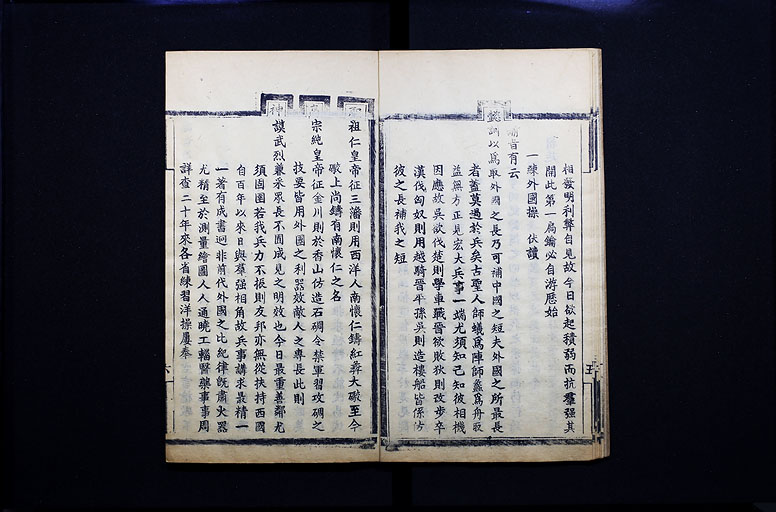 相發明利弊自見故今日欲起積弱而抗羣強其
關此第一扃鑰必自游歷始
一練外國操 伏讀
聖制昔有云
懿訓以爲取外國之長乃可補中國之短夫外國之所最長
者蓋莫過於兵矣古聖人師蟻爲陣師蠡爲舟取
益無方正見宏大兵事一端尤須知己知彼相機
因應故吳欲伐楚則學車戰晉欲敗狄則改步卒
漢伐匈奴則用越騎晉平孫吳則造樓船皆係仿
彼之長補我之短
聖祖仁皇帝征三藩則用西洋人南懷仁鑄紅彝大礮至今
礮上尚鑄有南懷仁之名
高宗純皇帝征金川則於香山仿造石碉令禁軍習攻碉之
技要皆用外國之利器效敵人之專長此則
神謨武烈兼采眾長不囿成見之明效也今日最重善鄰尤
須固圉若我兵力不振則友邦亦無從扶持西國
自百年以來日與羣強相角故兵事講求最精一
一著有成書迥非前代外國之比紀律既肅火器
尤精至於測量繪圖人人通曉工輜醫藥事事周
詳查二十年來各省練習洋操屢奉
五
六